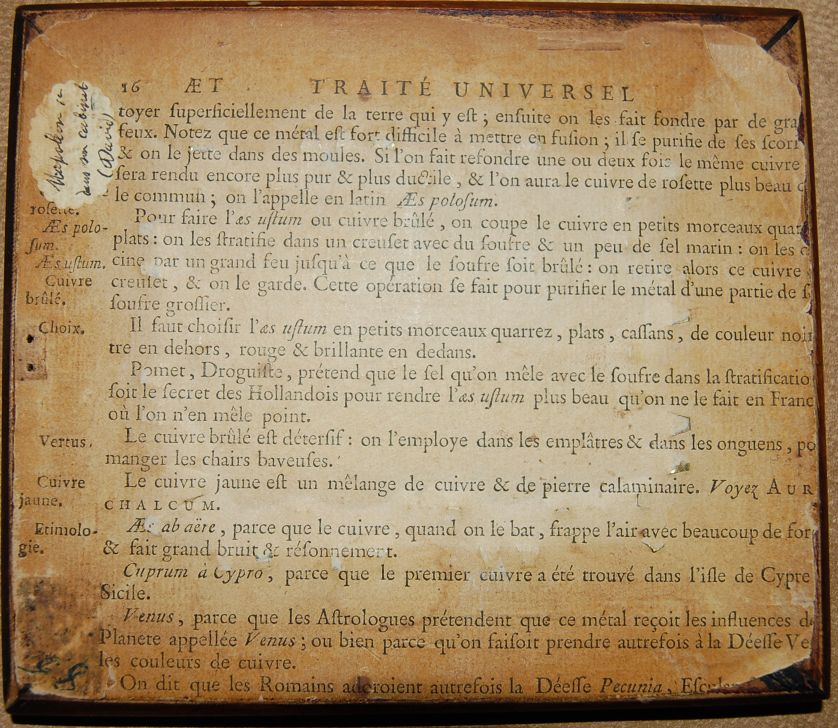 16 ÆT TRAITÉ UNIVERSEL
toyer ſuperficiellement de la terre qui y eſt ; enſuite on les fait fondre par de gra
feux. Notez que ce métal eſt fort difficile à mettre en fuſion ; il ſe purifie de ſes ſcori
& on le jette dans des moules. Si l'on fait refondre une ou deux fois le même cuivre
ſera rendu encore plus pur & plus ductile , & l'on aura le cuivre de roſette plus beau q
le commun ; on l'appelle en latin Æs poloſum.
Pour faire l'æs uſtum ou cuivre brûlé , on coupe le cuivre en petits morceaux quar
plats : on les ſtratifie dans un creuſet avec du ſoufre & un peu de ſel marin : on les c
cine par un grand feu juſqu'à ce que le ſoufre ſoit brûlé : on retire alors ce cuivre
creuſet , & on le garde. Cette opération ſe fait pour purifier le métal d'une partie de ſ
ſoufre groſſier.
Il faut choiſir l'æs uſtum en petits morceaux quarrez , plats , caſſans , de couleur noi
tre en dehors , rouge & brillante en dedans.
Pomet , Droguiſte , prétend que le ſel qu'on mêle avec le ſoufre dans la ſtratificatio
ſoit le ſecret des Hollandois pour rendre l'æs uſtum plus beau qu'on ne le fait en Franc
où l'on n'en mêle point.
Le cuivre brûlé eſt déterſif : on l'employe dans les emplâtres & dans les onguens , po
manger les chairs baveuſes.
Le cuivre jaune eſt un mêlange de cuivre & de pierre calaminaire. Voyez AUR
CHALCUM.
Æs ab aëre , parce que le cuivre , quand on le bat , frappe l'air avec beaucoup de for
& fait grand bruit & réſonnement.
Cuprum à Cypro , parce que le premier cuivre a été trouvé dans l'iſle de Cypre
Sicile.
Venus , parce que les Aſtrologues prétendent que ce métal reçoit les influences d
Planete appellée Venus ; ou bien parce qu'on faiſoit prendre autrefois à la Déeſſe Ve
les couleurs de cuivre.
On dit que les Romains adoroient autrefois la Déeſſe Pecunia , Eſcul
roſette.
Æs polo-
ſum.
Æs uſtum.
Cuivre
brûlé.
Choix.
Vertus.
Cuivre
jaune.
Etimolo-
gie.
Napoléon
dans son cabinet
(David)